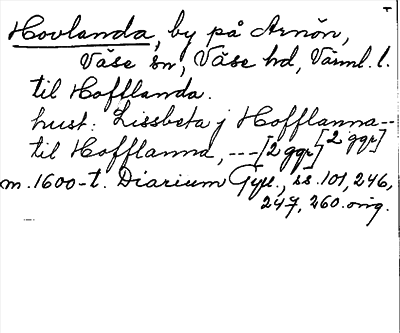 Hovlanda, by på Arnön,
Väse sn, Väse hd, Värml. l.
til Hofflanda.
hust. Lissbeta j Hofflanna--
til Hofflanna, ---[2 ggr] [2 ggr]
m. 1600-t. Diarium Gyll., ss. 101, 246,
247, 260. orig.